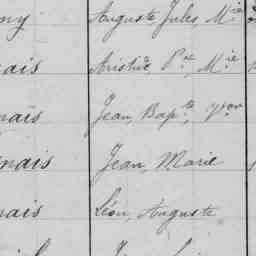 ny Auguste, Jules, Mie
nais Aristide, Pre, Mie
nais Jean, Bapte, Yvon
nais Jean, Marie
nais Léon, Auguste